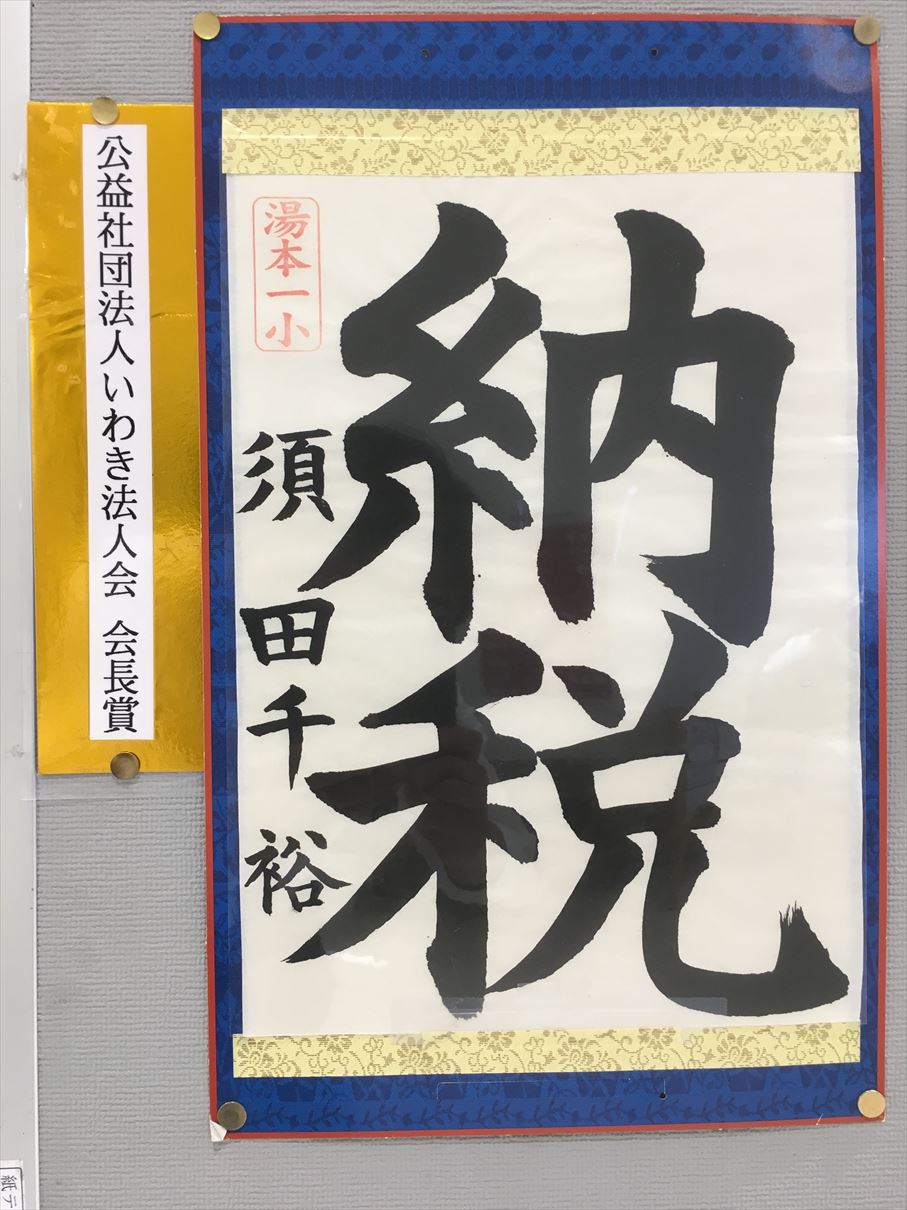 納税
湯本一小
須田千裕
公益社団法人いわき法人会 会長賞
紙テ